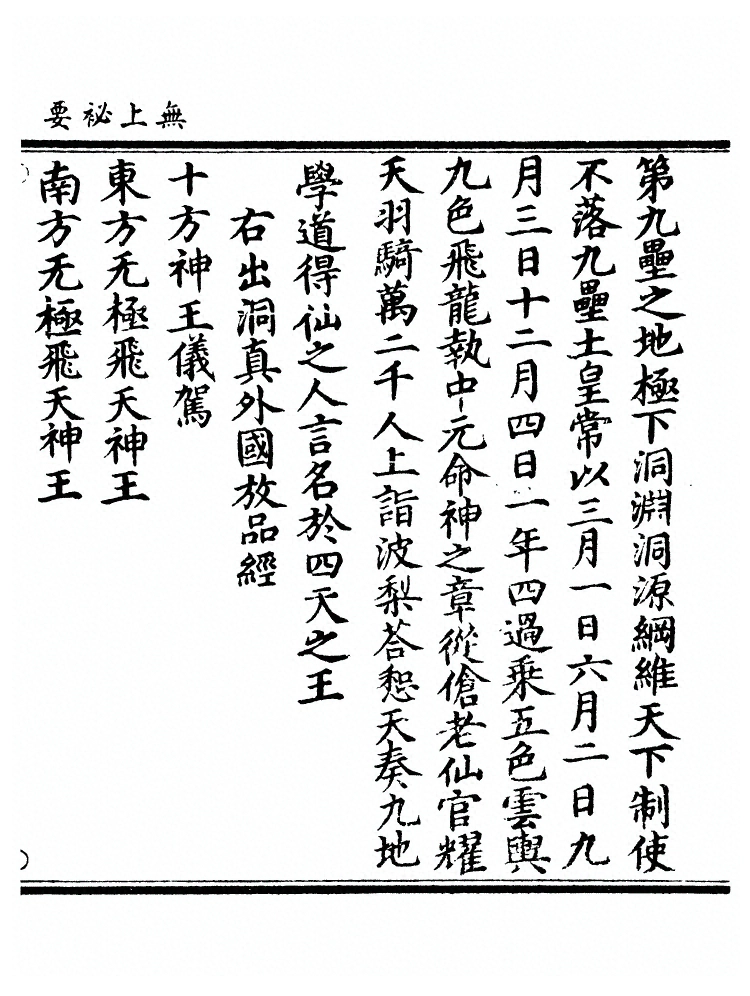 無上祕要
第九壘之地極下洞淵洞源綱維天下制使
不落九壘土皇常以三月一日六月二日九
月三日十二月四日一年四過乘五色雲輿
九色飛龍執中元命神之章從傖老仙官耀
天羽騎萬二千人上詣波梨荅惒天奏九地
學道得仙之人言名於四天之王
右出洞真外國放品經
十方神王儀駕
東方无極飛天神王
南方无極飛天神王